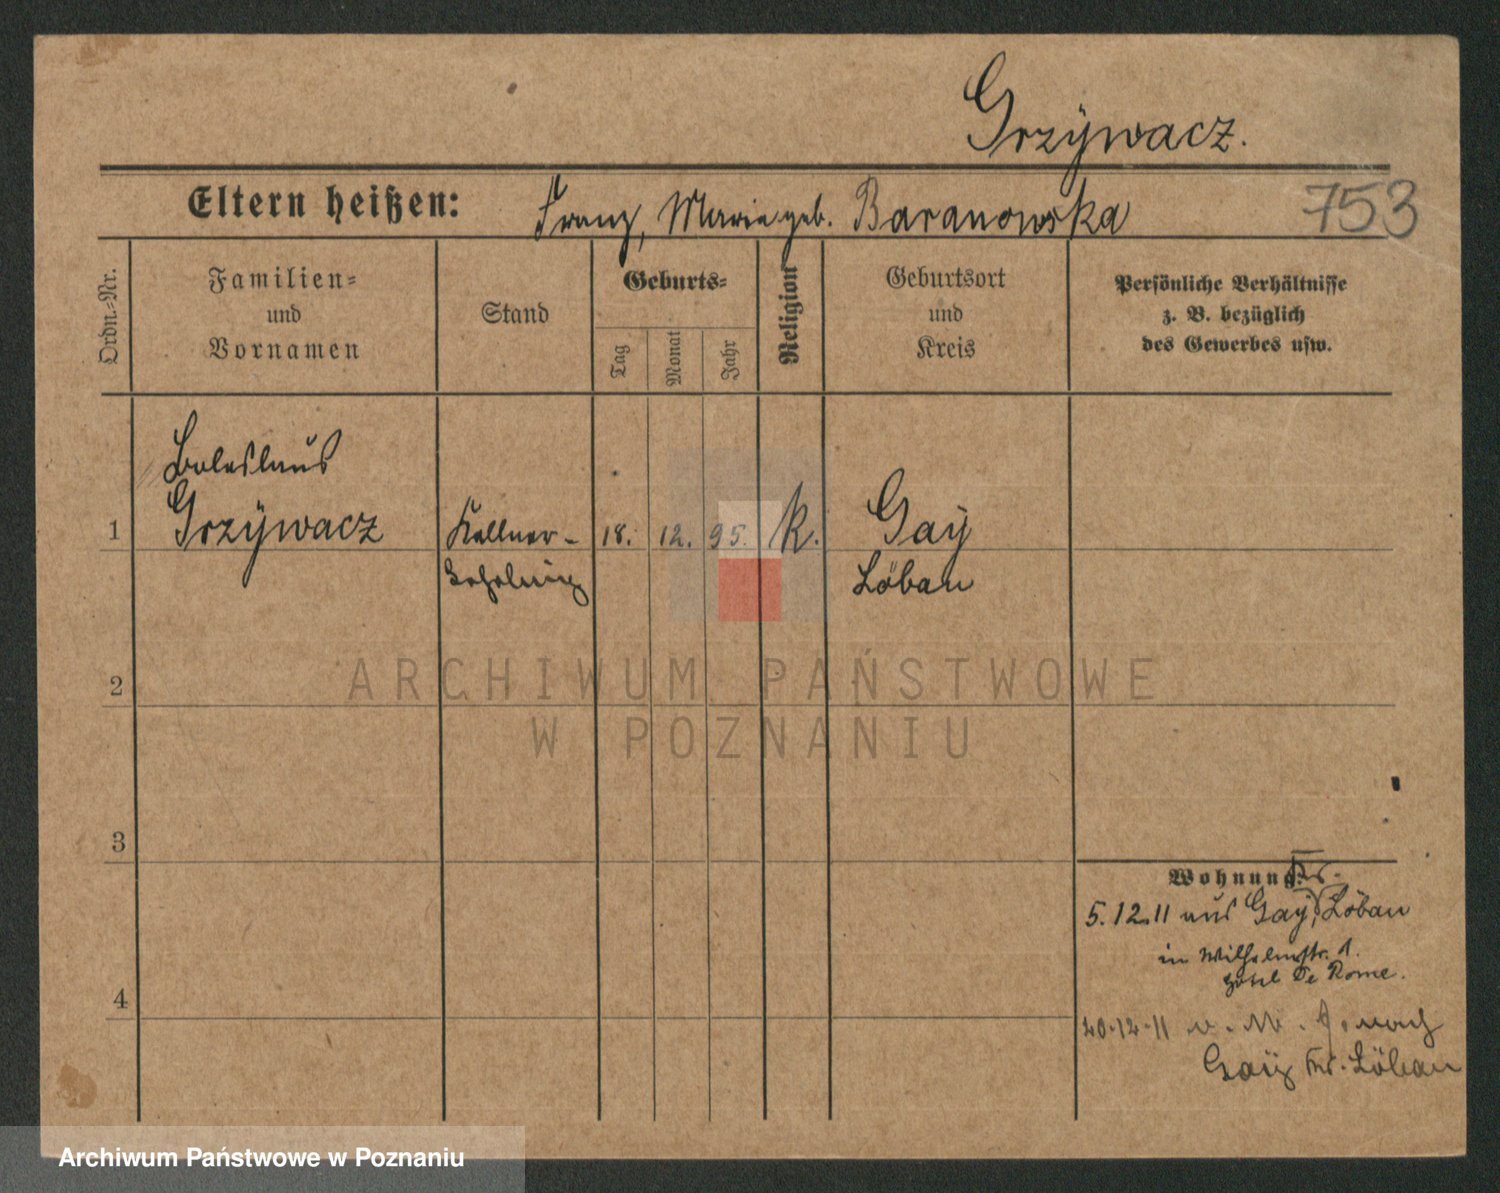 Grzywacz.
Eltern heißen: Franz, Marie geb. Baranowska 753
Ordn.-Nr.
Familien=
und
Vornamen
Stand
Geburts=
Tag
Monat
Jahr
Religion
Geburtsort
und
Kreis
Persönliche Verhältnisse
z. B. bezüglich
des Gewerbes usw.
Boleslaus
1 Grzÿwacz Kellner- 18. 12. 95. k. Gay
Löbau
2
ARCHIWUM PAŃSTWOWE
W POZNANIU
3
Wohnung: Kr.
5.12.11 aus Gay, Löbau
in Wilhelmstr. 1.
Hotel De Rome.
4
20.12.11 nach
Gaÿ Kr. Löbau
Archiwum Państwowe w Poznaniu